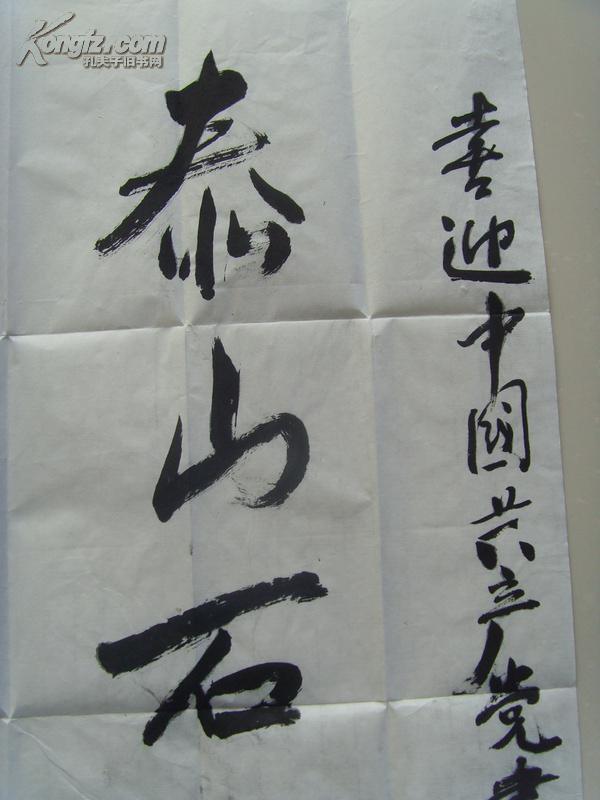 喜迎中國共产党
泰山石
Kongfz.com
孔夫子旧书网